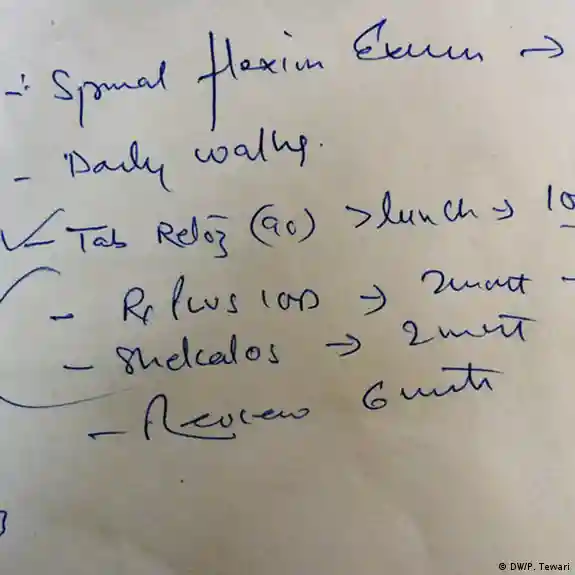 -: Spinal flexion Exerm →
- Daily walkg.
✓ - Tab Reloz (90) > lunch → 10
- Rx Plus 10D → 2 mnt -
- Shelcalos → 2 mnt
- Review 6 mnts
© DW/P. Tewari